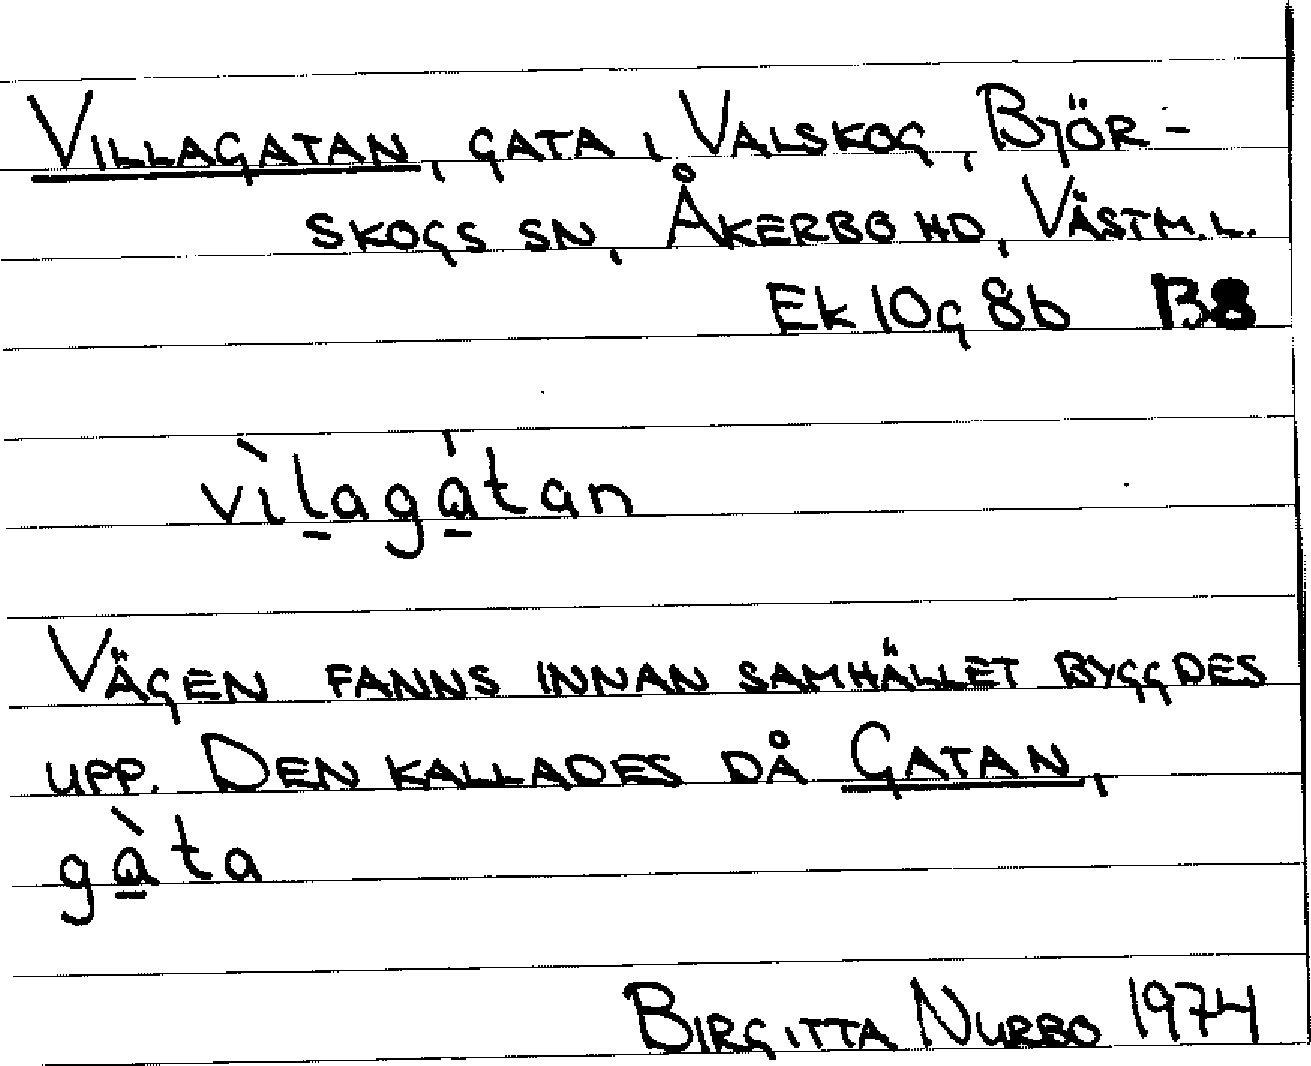 VILLAGATAN, GATA I VALSKOG, BJÖR-
SKOGS SN, ÅKERBO HD, VÄSTM.L.
Ek 10g 8b B8
vìl̠aga̠̍tan
VÄGEN FANNS INNAN SAMHÄLLET BYGGDES
UPP. DEN KALLADES DÅ GATAN,
gà̠ta
BIRGITTA NURBO 1974